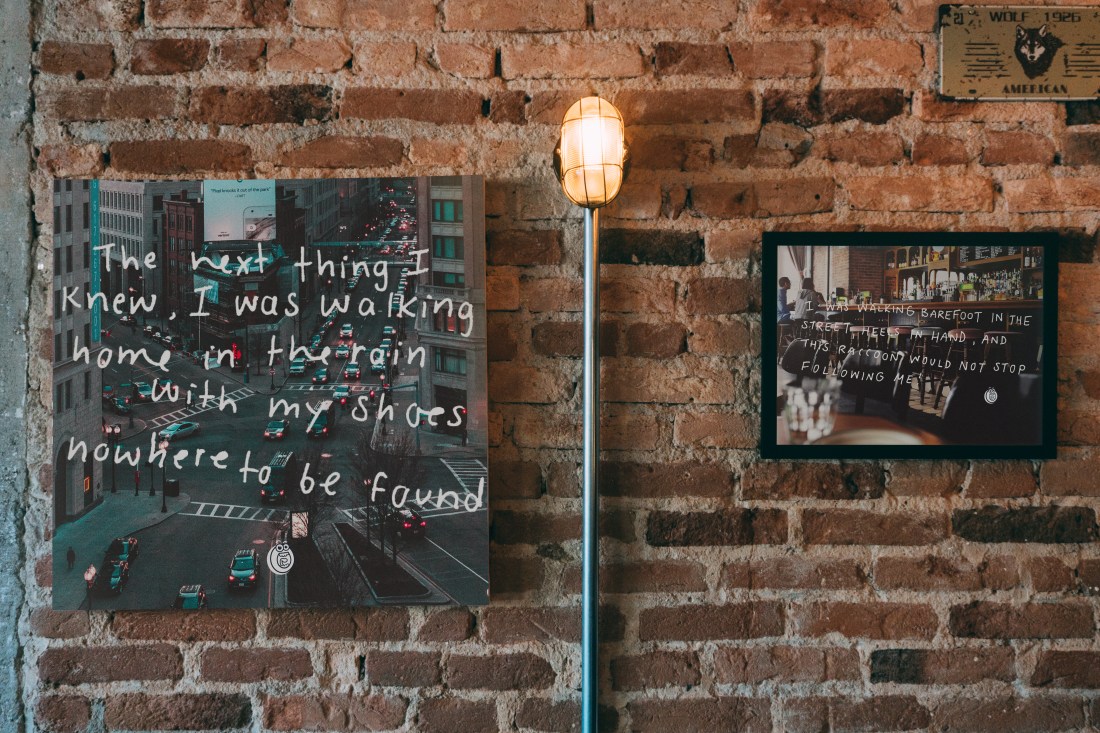 The next thing I
knew, I was walking
home in the rain
with my shoes
nowhere to be found
"I WAS WALKING BAREFOOT IN THE
STREET, HEELS IN HAND, AND
THIS RACCOON WOULD NOT STOP
FOLLOWING ME"
WOLF 1926
AMERICAN